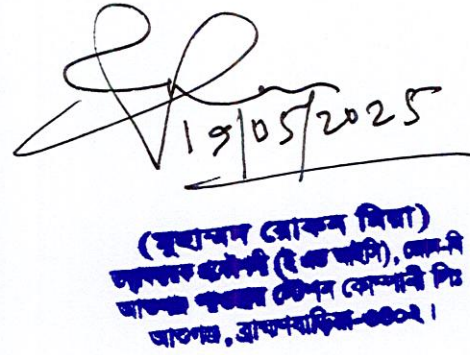 19/05/2025
(মুহাম্মদ রোকন মিয়া)
তত্ত্বাবধায়ক প্রকৌশলী (ই এন্ড আইসি), জোন-বি
আশুগঞ্জ পাওয়ার স্টেশন কোম্পানী লিঃ
আশুগঞ্জ, ব্রাহ্মণবাড়িয়া-৩৪০২।